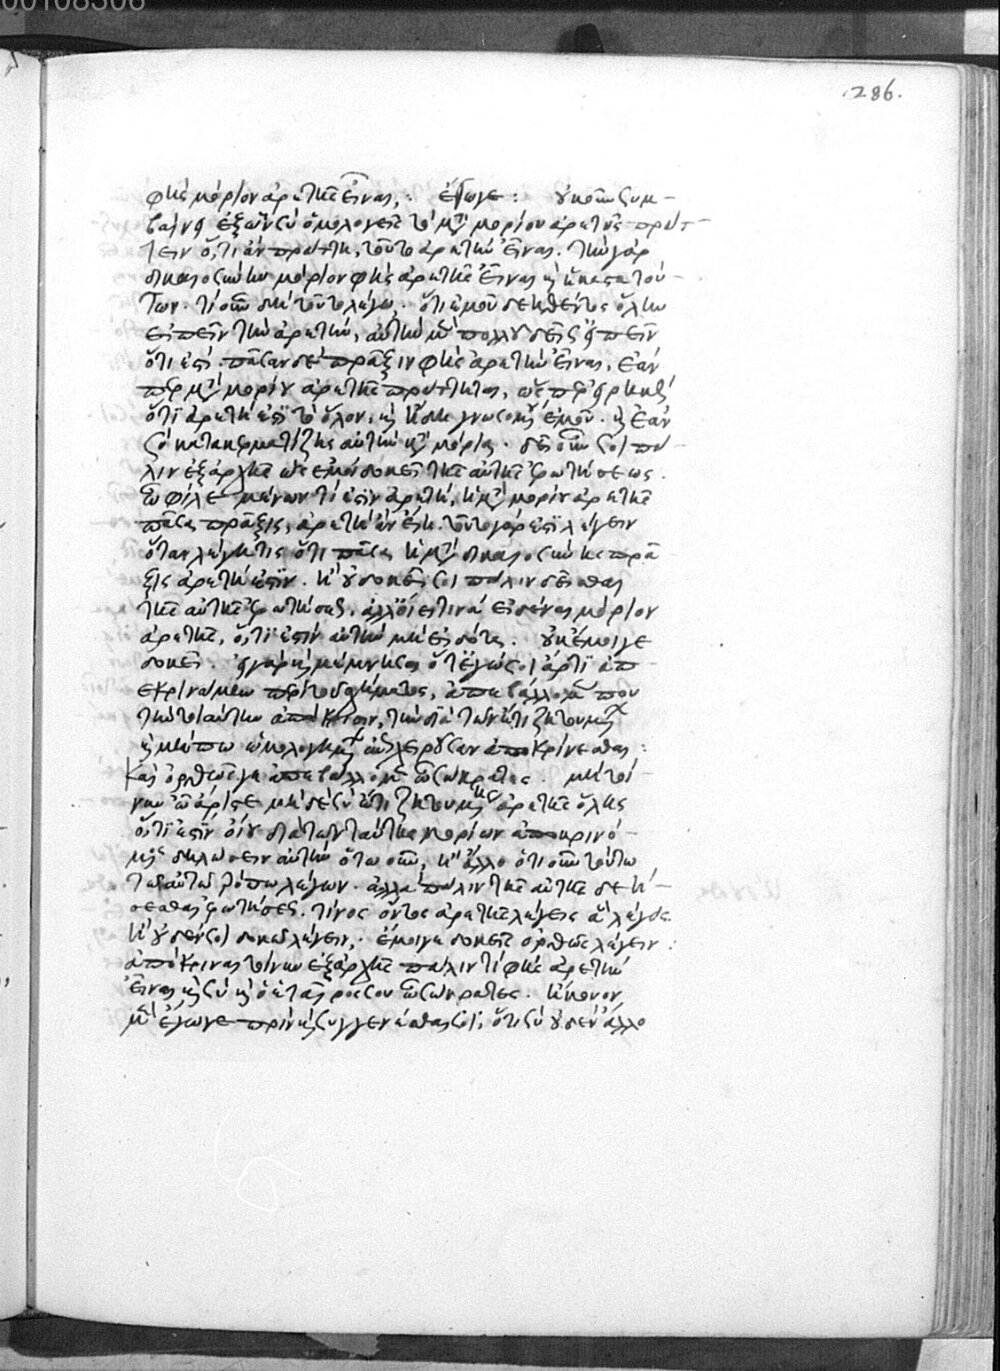 φῂς μόριον ἀρετῆς εἶναι; ἔγωγε: οὐκοῦν συμ-
βαίνει ἐξ ὧν σὺ ὁμολογεῖς τὸ μετὰ μορίου ἀρετῆς πράτ-
τειν ὅ,τι ἂν πράττῃ, τοῦτο ἀρετὴν εἶναι. τὴν γὰρ
δικαιοσύνην μόριον φῂς ἀρετῆς εἶναι καὶ ἕκαστα τού-
των. τί οὖν δὴ τοῦτο λέγω. ὅτι ἐμοῦ δεηθέντος ὅλην
εἰπεῖν τὴν ἀρετήν, αὐτὴν μὲν πολλοῦ δεῖς εἰπεῖν
ὅτι ἐστί. πᾶσαν δὲ πρᾶξιν φῂς ἀρετὴν εἶναι, ἐάν
περ μετὰ μορίου ἀρετῆς πράττηται, ὥσπερ εἰρηκὼς
ὅτι ἀρετή ἐστι τὸ ὅλον, καὶ ἤδη γνωσομένου ἐμοῦ. καὶ ἐὰν
σὺ κατακερματίζῃς αὐτὴν κατὰ μόρια. δεῖ οὖν σοι πά-
λιν ἐξ ἀρχῆς ὡς ἐμοὶ δοκεῖ τῆς αὐτῆς ἐρωτήσεως.
ὦ φίλε μένων τί ἐστιν ἀρετή, εἰ μετὰ μορίου ἀρετῆς
πᾶσα πρᾶξις, ἀρετὴ ἂν εἴη. τοῦτο γάρ ἐστι λέγειν
ὅταν λέγῃ τις ὅτι πᾶσα ἡ μετὰ δικαιοσύνης πρᾶ
ξις ἀρετή ἐστιν. ἢ οὐ δοκεῖ σοι πάλιν δεῖσθαι
τῆς αὐτῆς ἐρωτήσεως, ἀλλ' οἴει τινὰ εἰδέναι μόριον
ἀρετῆς, ὅ,τι ἐστὶν αὐτὴν μὴ εἰδότα. οὐκ ἔμοιγε
δοκεῖ. εἰ γὰρ καὶ μέμνησαι ὅτ' ἐγώ σοι ἄρτι ἀπ-
εκρινάμην περὶ τοῦ σχήματος, ἀπεβάλλομέν που
τὴν τοιαύτην ἀπόκρισιν, τὴν διὰ τῶν ἔτι ζητουμένων
καὶ μήπω ὡμολογημένων ἐπιχειροῦσαν ἀποκρίνεσθαι:
καὶ ὀρθῶς γε ἀπεβάλλομεν ὦ σώκρατες. μὴ τοί-
νυν ὦ ἄριστε μηδὲ σὺ ἔτι ζητουμένης ἀρετῆς ὅλης
ὅ,τι ἐστὶν οἴου διὰ τῶν ταύτης μορίων ἀποκρινό-
μενος δηλώσειν αὐτὴν ὁτωοῦν, ἢ ἄλλο ὁτιοῦν τούτω
τῶ αὐτῶ τρόπω λέγων. ἀλλὰ πάλιν τῆς αὐτῆς δεή-
σεσθαι ἐρωτήσεως. τίνος ὄντος ἀρετῆς λέγεις ἃ λέγεις.
ἢ οὐδέν σοι δοκῶ λέγειν; ἔμοιγε δοκεῖς ὀρθῶς λέγειν:
ἀπόκριναι τοίνυν ἐξ ἀρχῆς πάλιν τί φῂς ἀρετὴν
εἶναι καὶ σὺ καὶ ὁ ἑταῖρός σου ὦ σώκρατες. ἤκουον
μὲν ἔγωγε πρὶν καὶ συγγενέσθαι σοι, ὅτι σὺ οὐδὲν ἄλλο
286.